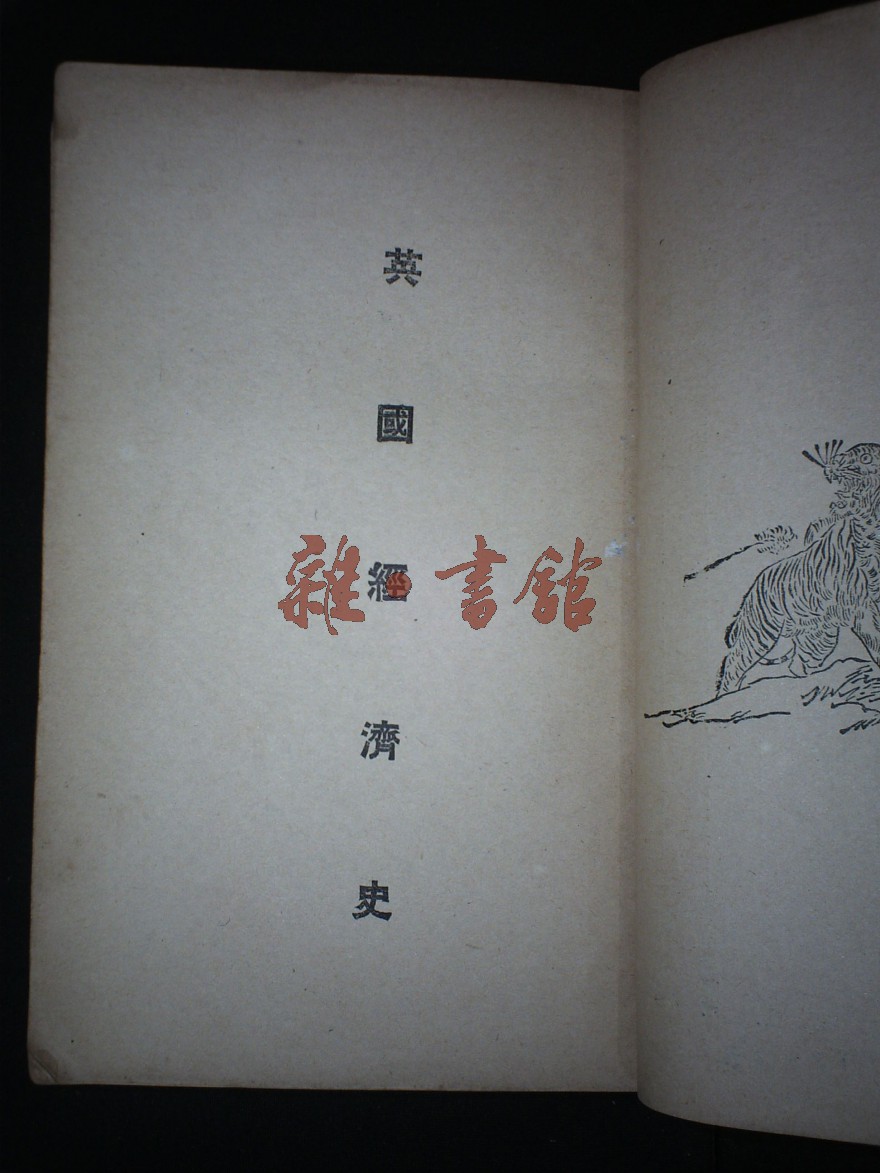 英國經濟史
雜·書館